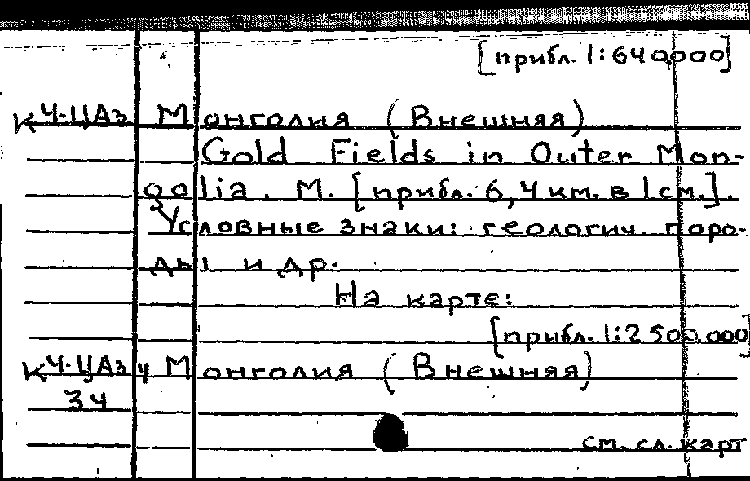 [прибл. 1:640000]
К Ч-ЦАз Монголия (Внешняя)
Gold Fields in Outer Mon-
golia. М. [прибл. 6,4 км. в 1 см.].
Условные знаки: геологич. поро-
ды и др.
На карте:
[прибл. 1:2 500.000]
К Ч-ЦАз Ч Монголия (Внешняя)
34
см. сл. карт